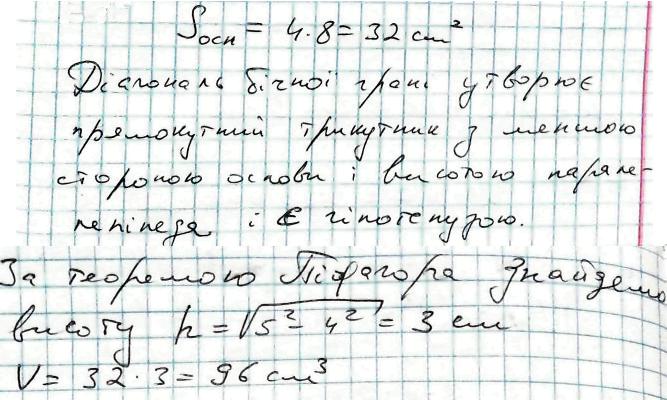 Sосн = 4·8 = 32 cm²
Діагональ бічної грані утворює
прямокутний трикутник з меншою
стороною основи і висотою парале-
лепіпеда і є гіпотенузою.
За теоремою Піфагора знайдемо
висоту h = √5² - 4² = 3 см
V = 32·3 = 96 см³